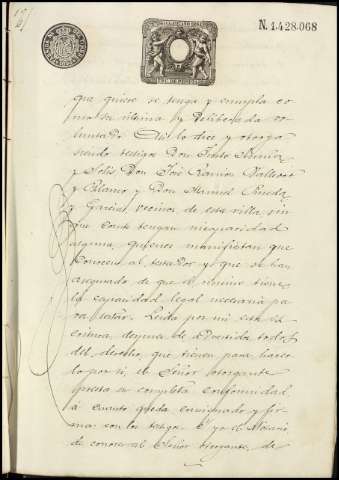 N. 1.428.068
que quiere se tenga y cumpla co-
mo su última y deliberada vo-
luntad. Así lo dice y otorga
siendo testigos Don
y Solís Don José Ramón Ballester
y Blanco y Don Manuel Pineda
y García, vecinos de esta villa, sin
que conste tengan incapacidad
alguna, quienes manifiestan que
conocen al testador y que se han
asegurado de que el mismo tiene
la capacidad legal necesaria pa-
ra testar. Leida por mi esta es-
critura despues de advertidos todos
del derecho que tienen para hacer-
lo por sí, el Señor otorgante
presta su completa conformidad
á cuanto queda consignado y fir-
ma con los testigos. Y yo el Notario
de conocer al Señor otorgante, de